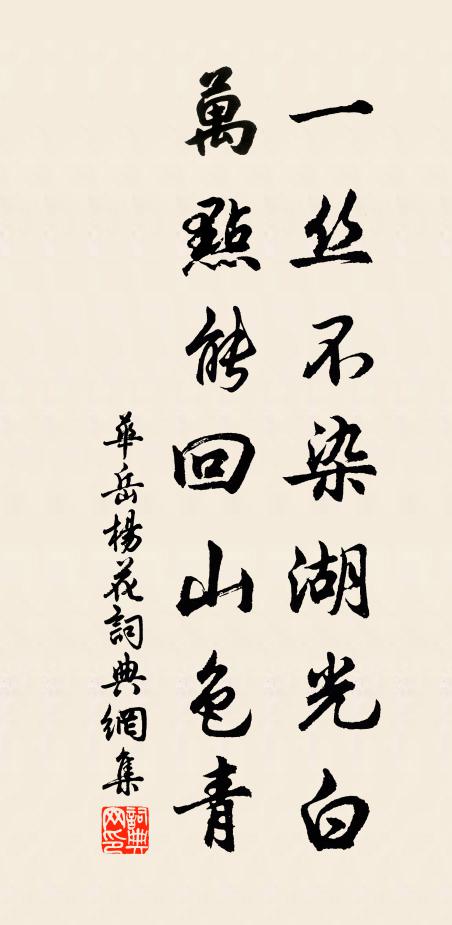 一丝不染湖光白
萬點能回山色青
華岳楊花詞典網集
詞典网印